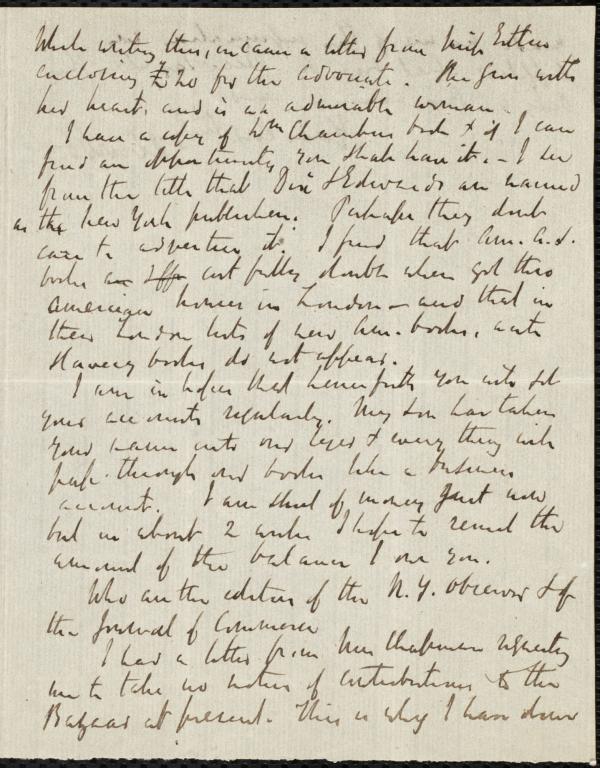 While writing this, in came a letter from Miss Estlin
enclosing £20 for the Advocate. She gives with
her heart, and is an admirable woman.
I have a copy of Wm Chambers book & if I can
find an opportunity you shall have it. - I see
from the title that Dix & Edwards are named
as the New York publishers. Perhaps they dont
care to advertise it. I find that Am. A.S.
books are cost fully double when got thro
American houses in London - and that in
their London lists of new Am. books, anti
slavery books do not appear.
I am in hopes that henceforth you will get
your accounts regularly. My son has taken
your name into our leger & every thing will
pass through our books like a business
account. I am short of money just now
but in about 2 weeks I hope to remit the
amount of the balance I owe you.
Who are the editors of the N.Y. Observer & of
the Journal of Commerce
I had a letter from Mrs Chapman requesting
me to take no notice of contributions to the
Bazaar at present. This is why I have done